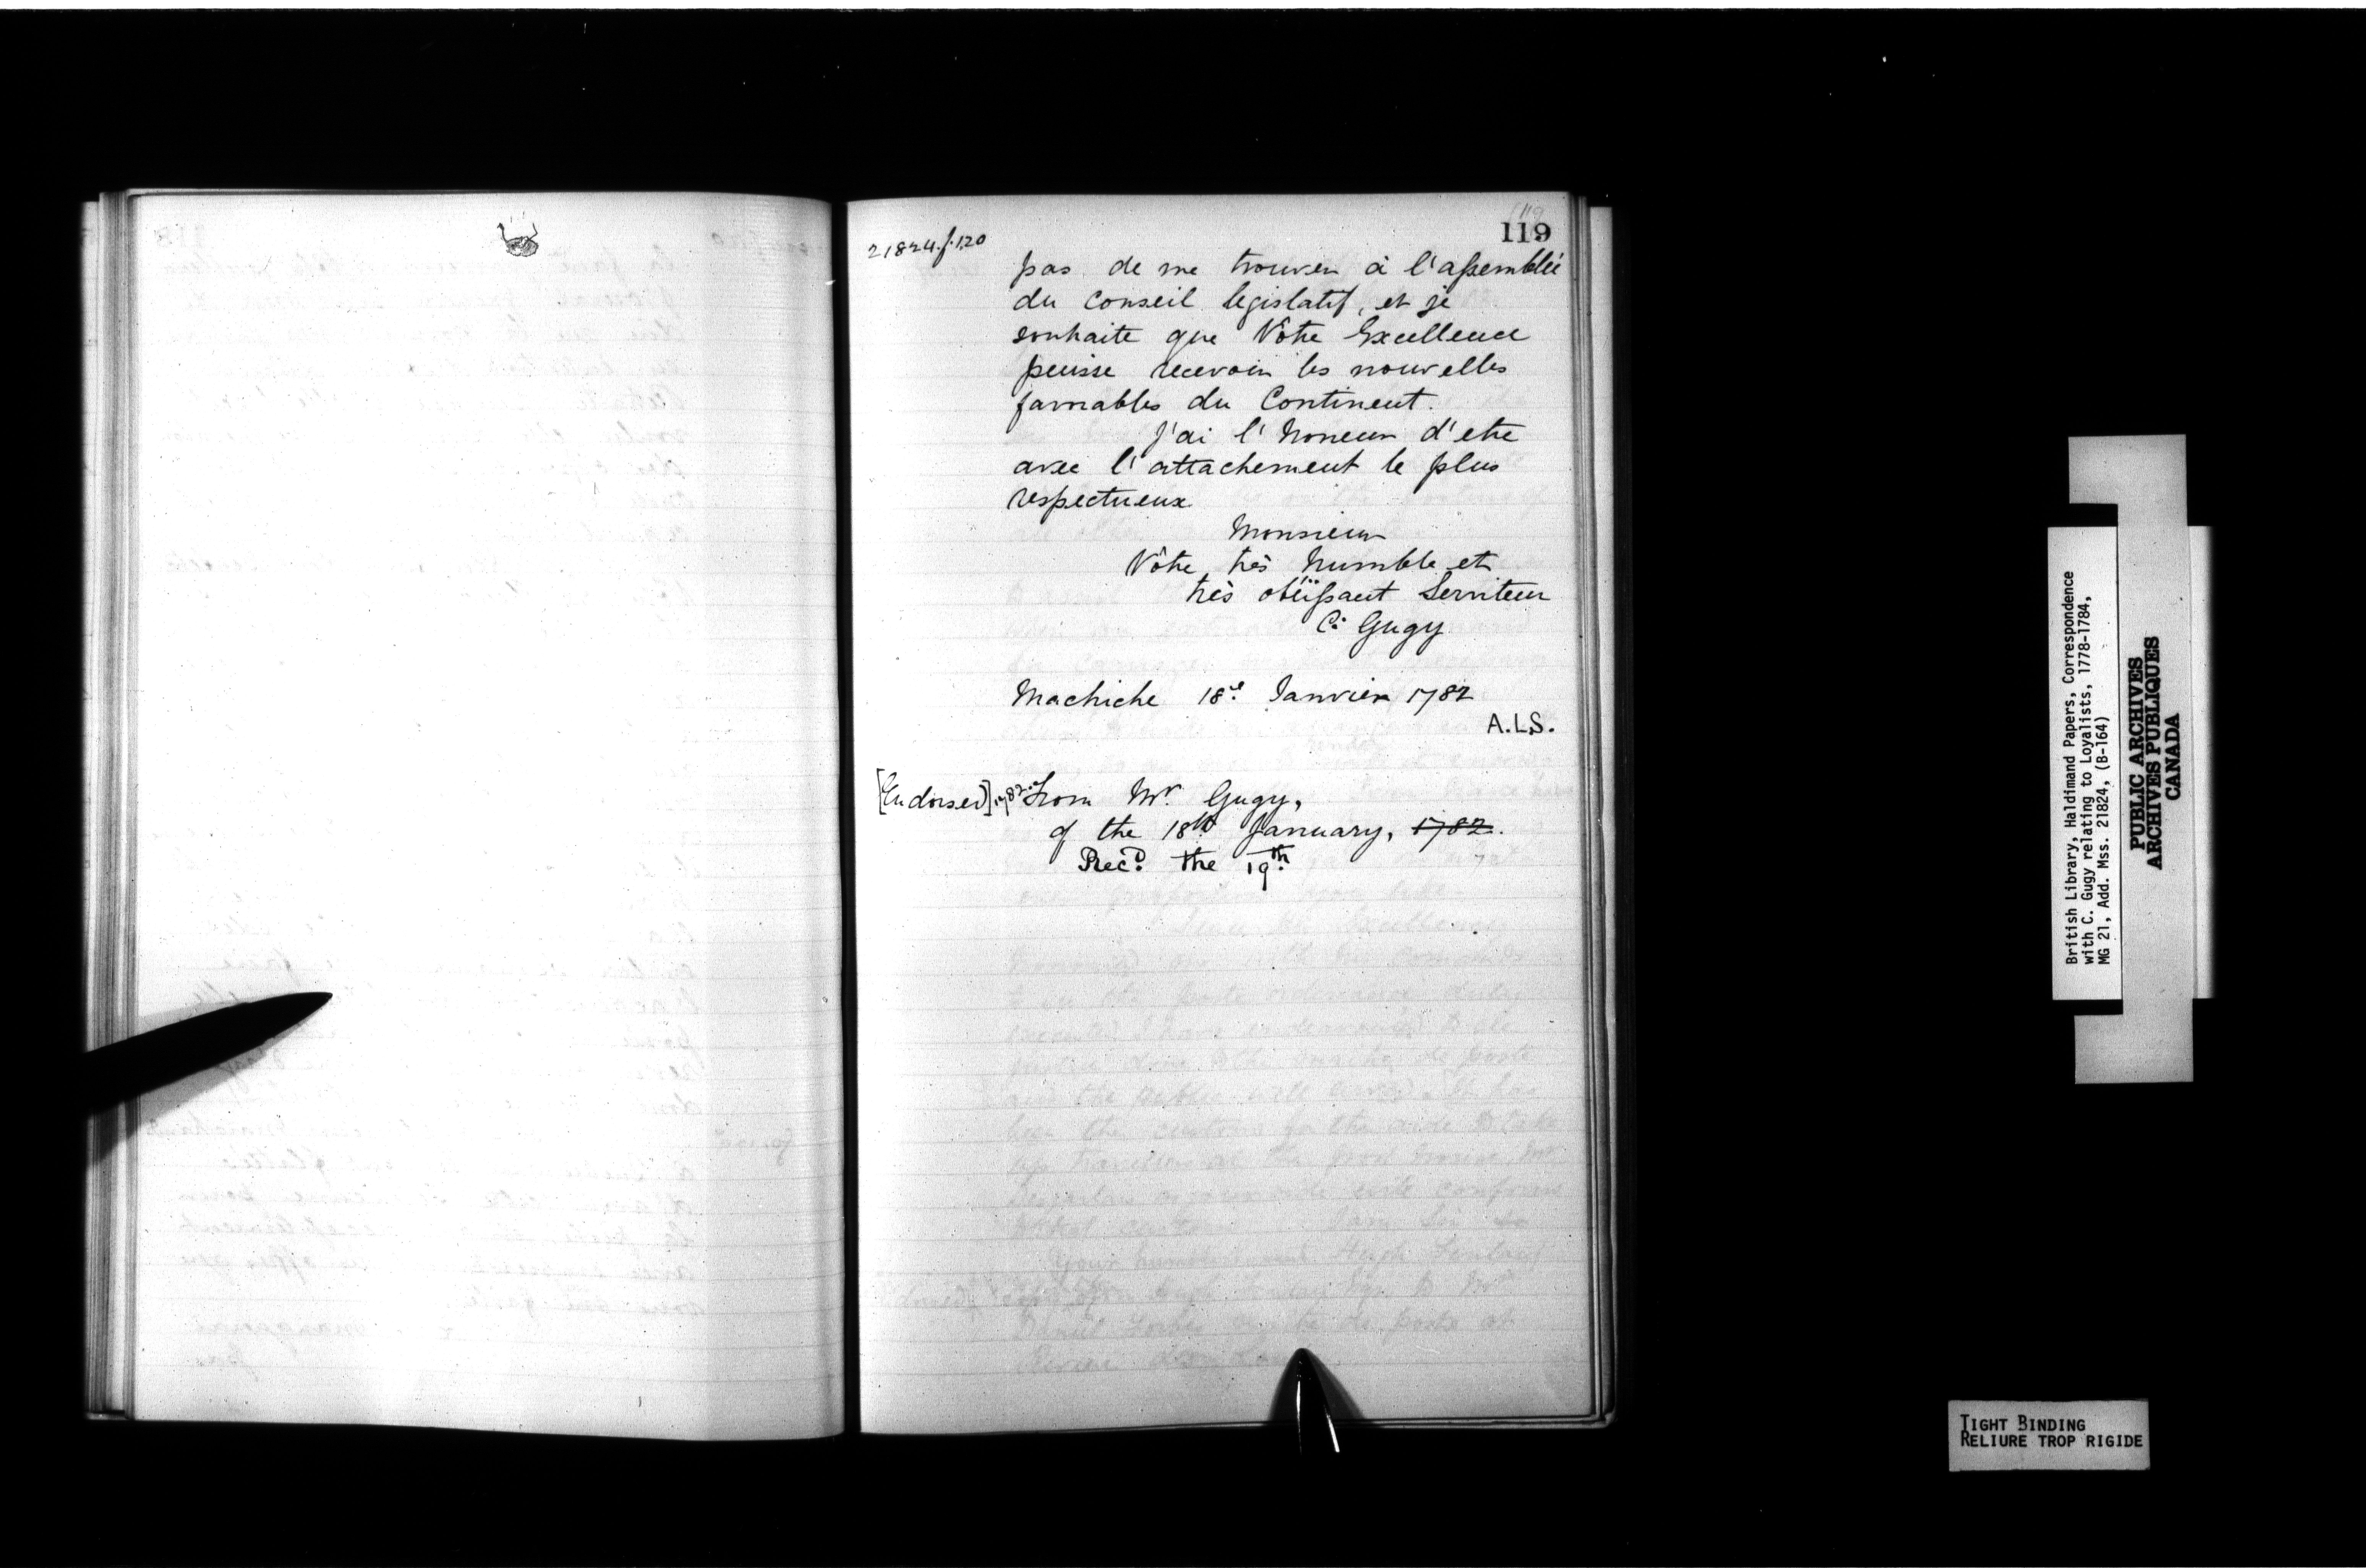 119
21824.f.120
pas de me trouver à l'aſsemblée
du Conseil legislatif, et je
souhaite que Vôtre Excellence
puisse recevoir les nouvelles
favorables du Continent.
J'ai l'honeur d'etre
avec l'attachement le plus
respectueux
Monsieur
Vôtre très humble et
très obëïſsant Serviteur
C: Gugy
Machiche 18.e Janvier 1782
A.L.S.
[Endorsed] 1782. From Mr. Gugy,
of the 18th January, 1782.
Rec'd. the 19th.
British Library, Haldimand Papers, Correspondence
with C. Gugy relating to Loyalists, 1778-1784,
MG 21, Add. Mss. 21824, (B-164)
PUBLIC ARCHIVES
ARCHIVES PUBLIQUES
CANADA
TIGHT BINDING
RELIURE TROP RIGIDE